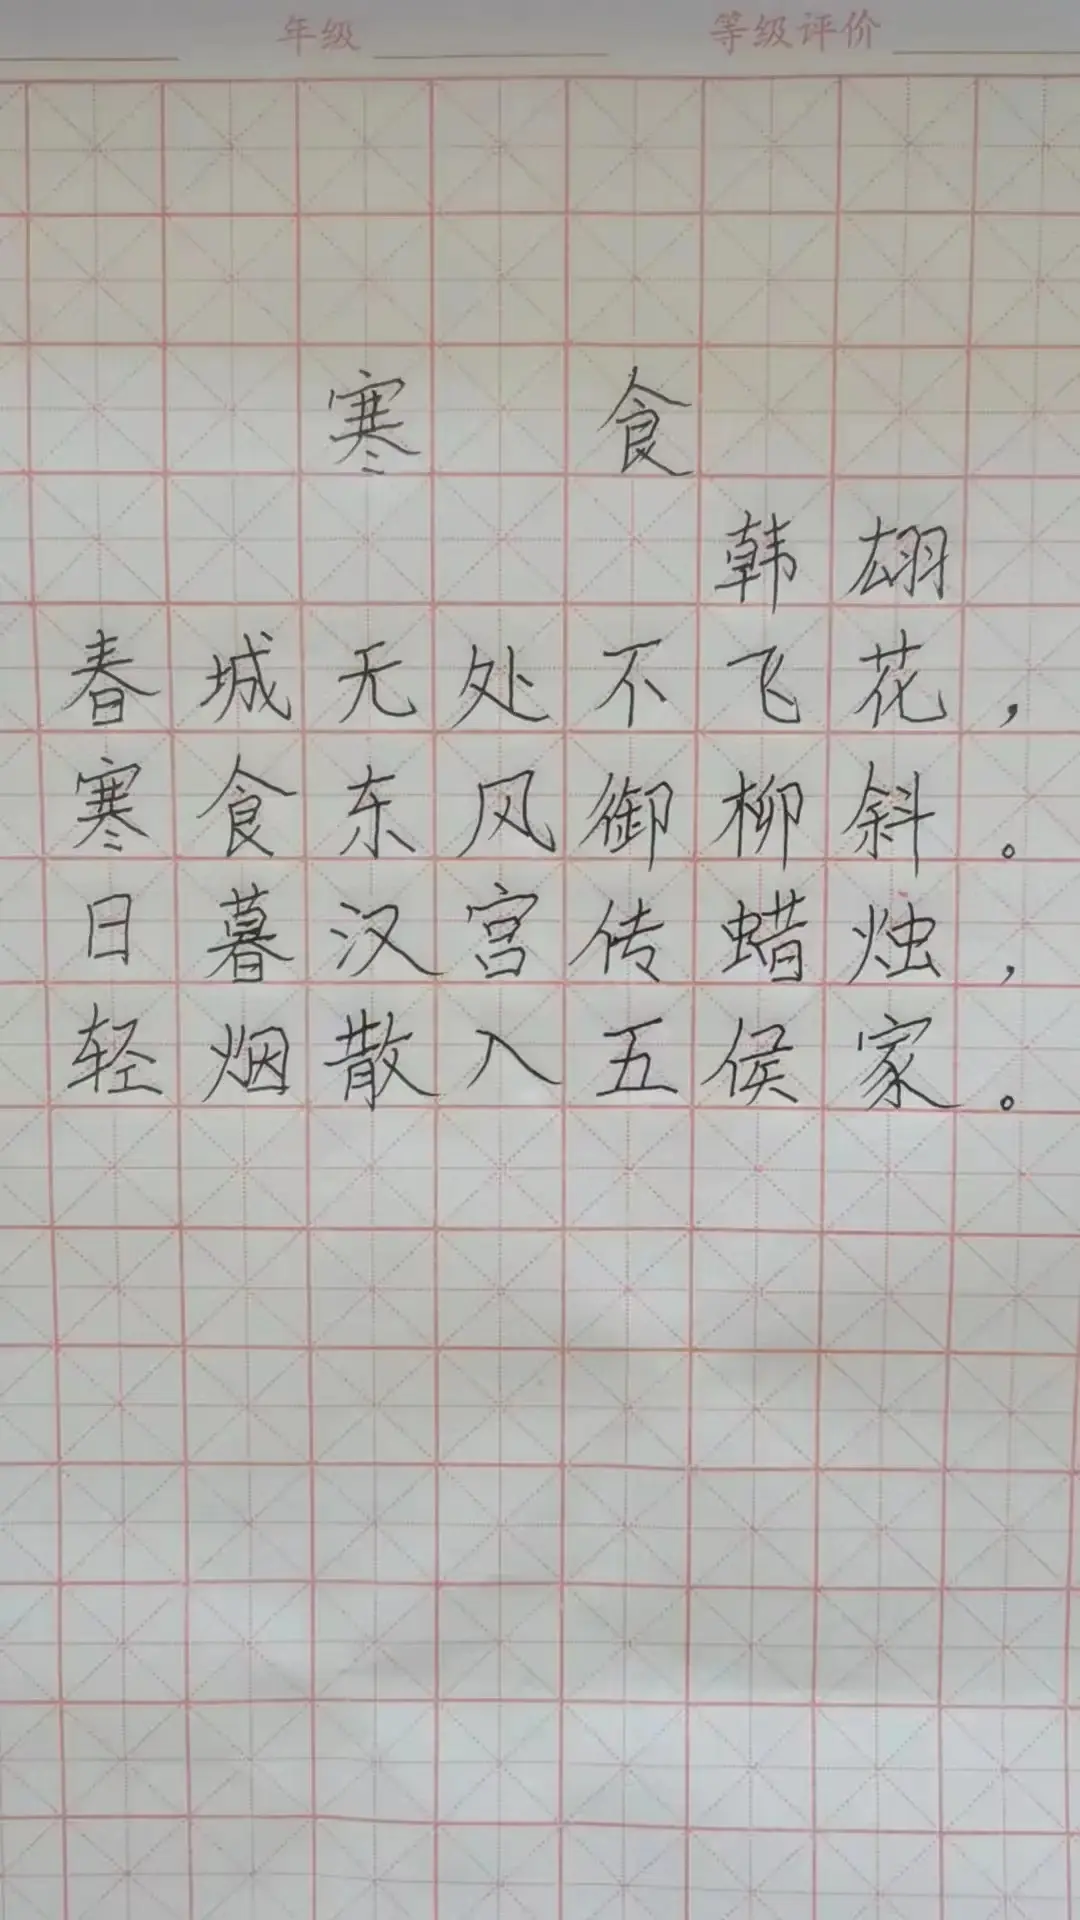 年级 等级评价
寒食
韩翃
春城无处不飞花，
寒食东风御柳斜。
日暮汉宫传蜡烛，
轻烟散入五侯家。